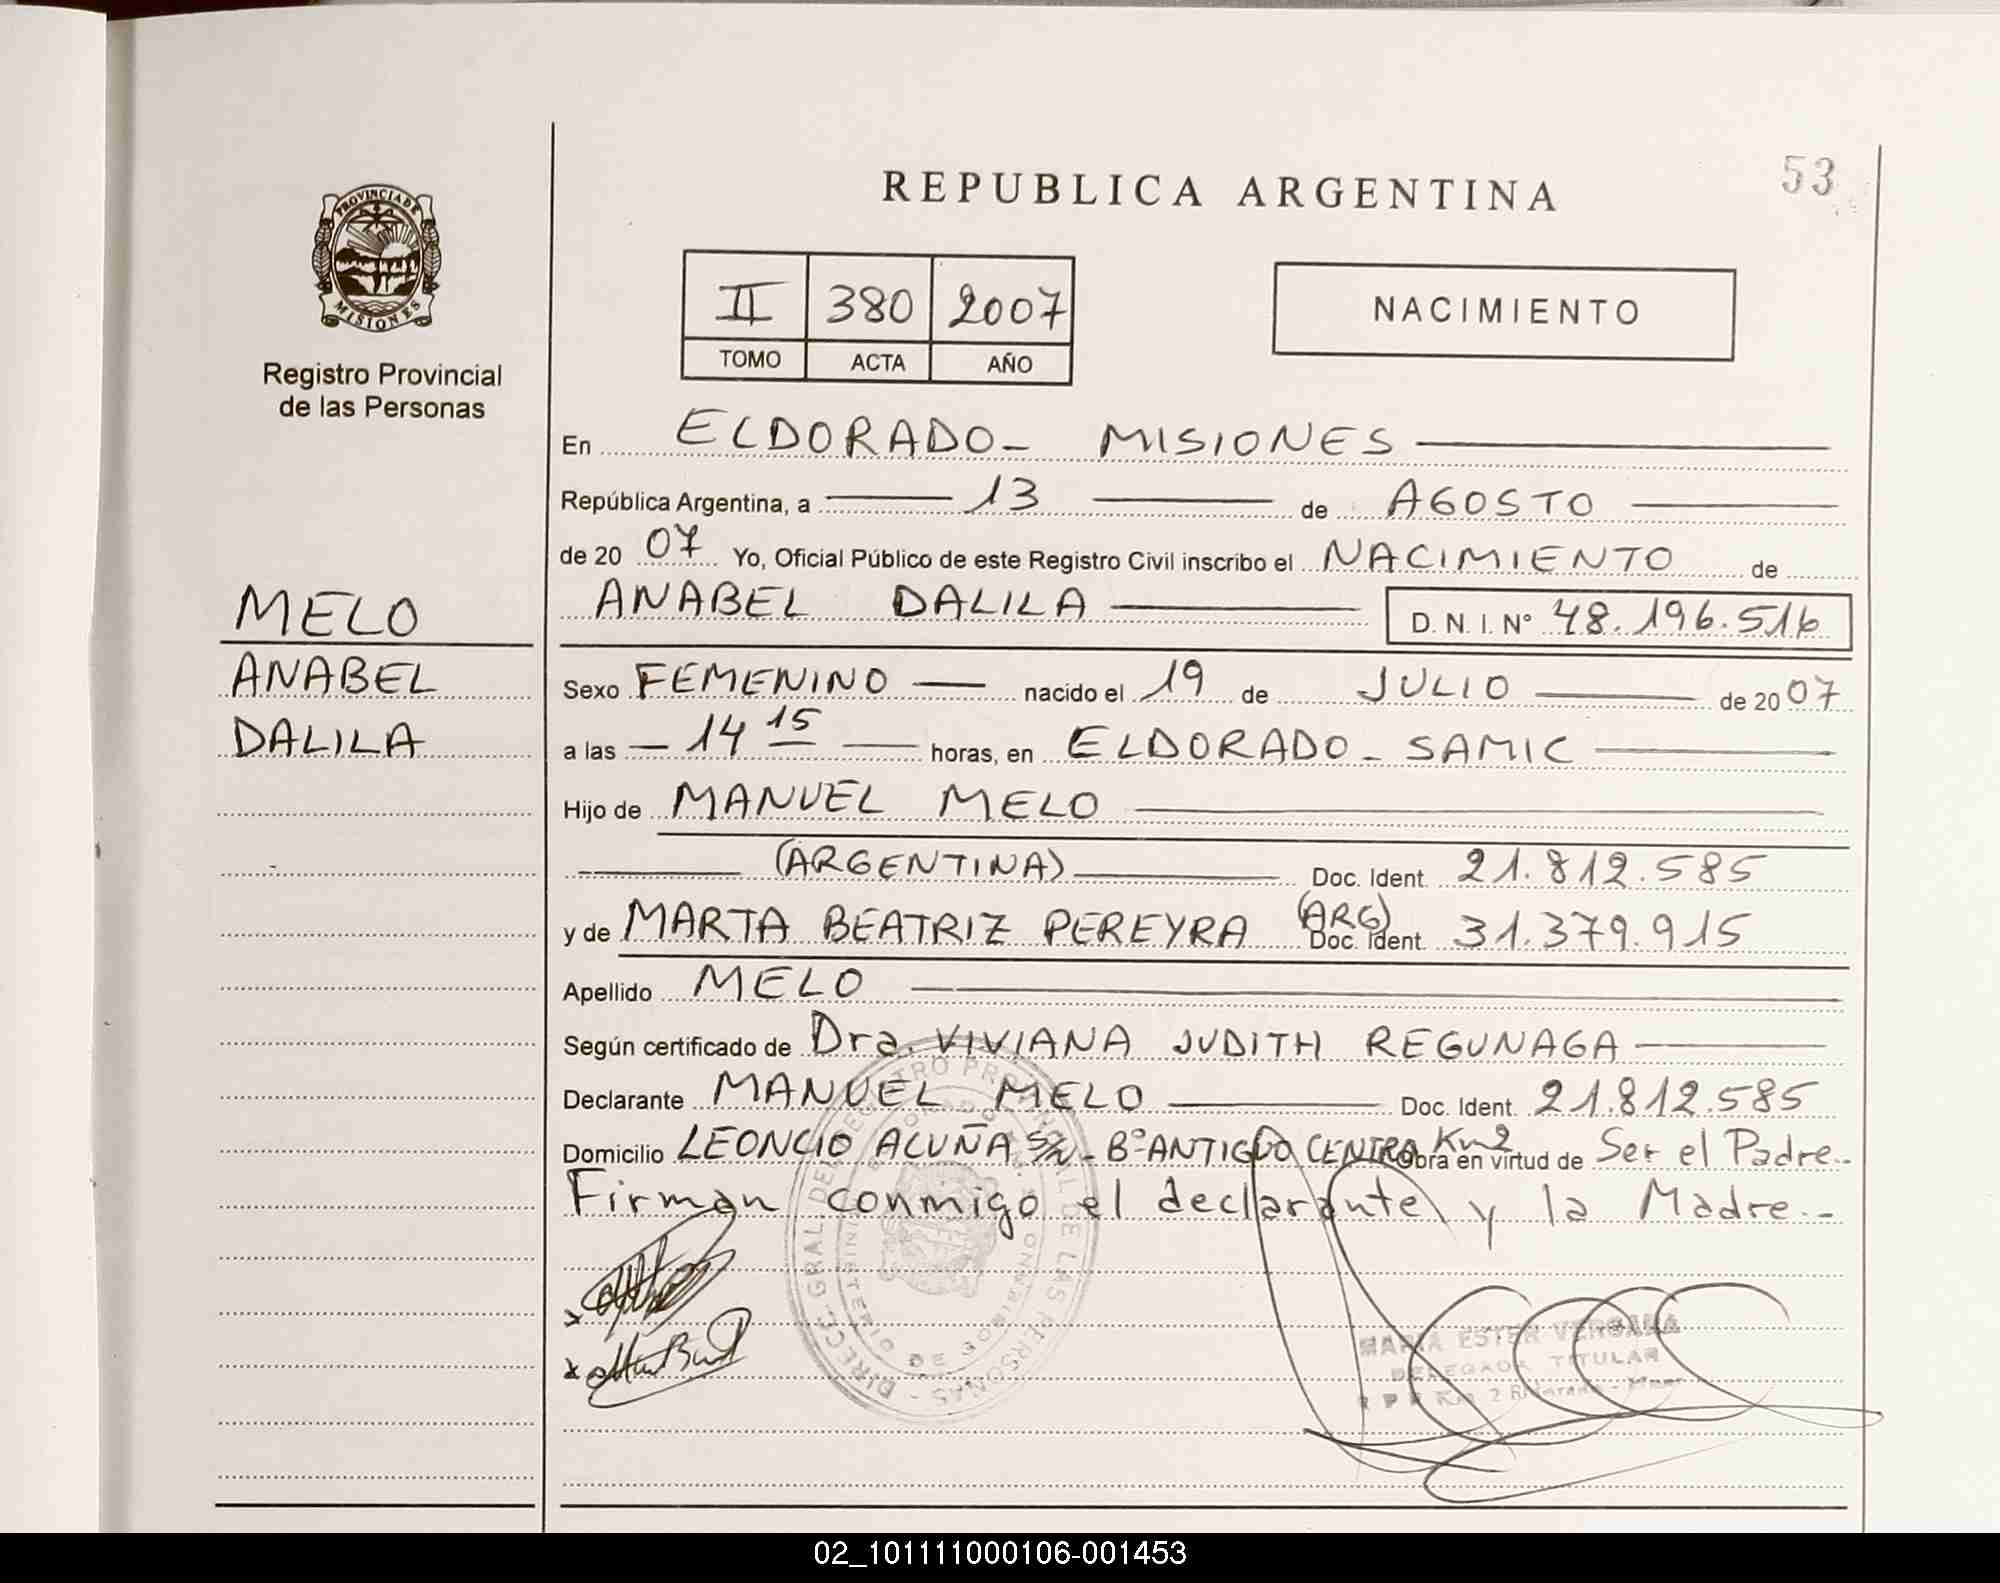 53
REPUBLICA ARGENTINA
PROVINCIA DE
MISIONES
Registro Provincial
de las Personas
II 380 2007
TOMO ACTA AÑO
NACIMIENTO
En ELDORADO - MISIONES
República Argentina, a 13 de AGOSTO
de 20 07 Yo, Oficial Público de este Registro Civil inscribo el NACIMIENTO de
ANABEL DALILA D. N. I. Nº 48.196.516
MELO
ANABEL
DALILA
Sexo FEMENINO nacido el 19 de JULIO de 20 07
a las 14 15 horas, en ELDORADO - SAMIC
Hijo de MANUEL MELO
(ARGENTINA) Doc. Ident. 21.812.585
y de MARTA BEATRIZ PEREYRA (ARG) Doc. Ident. 31.379.915
Apellido MELO
Según certificado de Dra. VIVIANA JUDITH REGUNAGA
Declarante MANUEL MELO Doc. Ident. 21.812.585
Domicilio LEONCIO ACUÑA S/N - Bº ANTIGUO CENTRO Km 2 Obra en virtud de Ser el Padre.-
Firman conmigo el declarante y la Madre.-
DIRECC. GRAL. DEL REGISTRO PROVINCIAL DE LAS PERSONAS
MARIA ESTER VERGARA
DELEGADA TITULAR
02_101111000106-001453